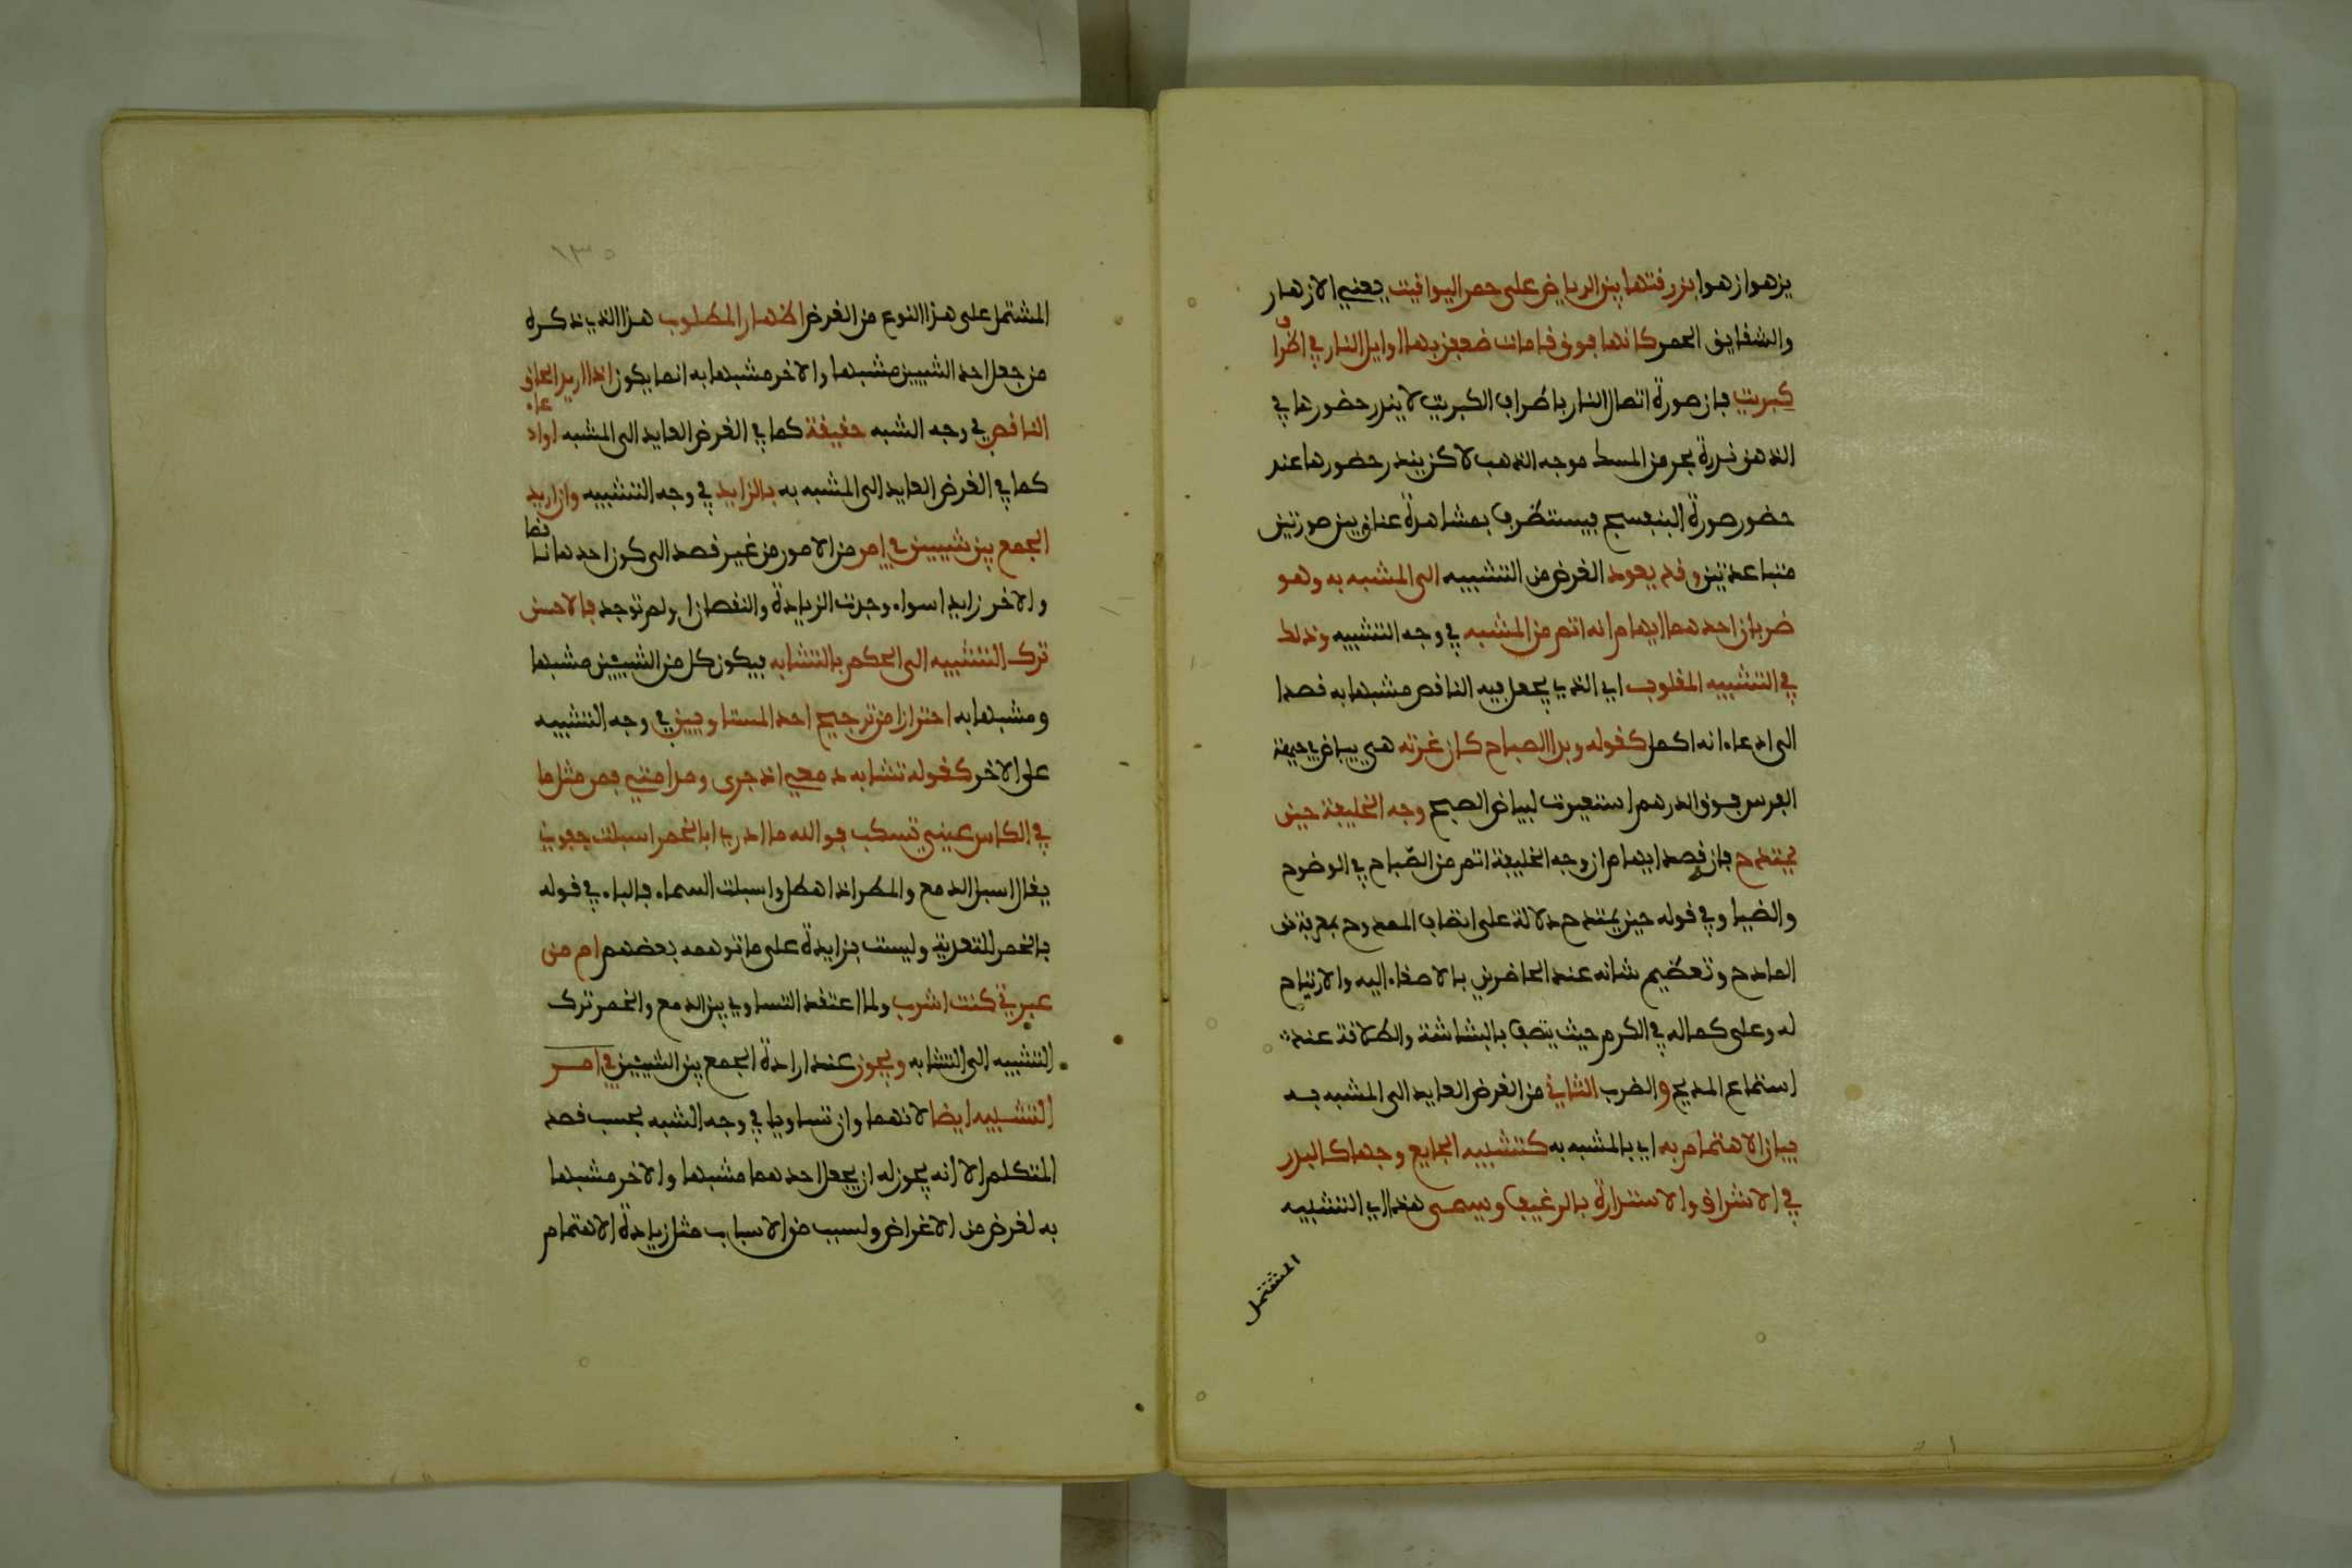 يزهوا زهوا بزرقتها بين الرياض على حمر اليواقيت يعني الازهار
والشقايق الحمر كانها فوق قامات ضعفن بها اوايل النار في اطراف
كبريت فان صورة اتصال النار باطراف الكبريت لا يندر حضورها في
الذهن ندرة بحر من المسك موجه الذهب لاكن يندر حضورها عند
حضور صورة البنفسج فيستطرف بمشاهدة عناق بين صورتين
متباعدتين وقد يعود الغرض من التشبيه الى المشبه به وهو
ضربان احدهما ايهام انه اتم من المشبه في وجه التشبيه وذلك
في التشبيه المقلوب اي الذي يجعل فيه الناقص مشبها به قصدا
الى ادعاء انه اكمل كقوله وبدا الصباح كان غرته هي بياض في جبهة
الفرس فوق الدرهم استعيرت لبياض الصبح وجه الخليفة حين
يمتدح فان قصد ايهام ان وجه الخليفة اتم من الصباح في الوضوح
والضيا وفي قوله حين يمتدح دلالة على اتصاف الممدوح بمعرفة حق
المادح وتعظيم شانه عند الحاضرين بالاصغاء اليه والارتياح
له وعلى كماله في الكرم حيث يتصف بالبشاشة والطلاقة عند
استماع المديح والضرب الثاني من الغرض العايد الى المشبه به
بيان الاهتمام به اي بالمشبه به كتشبيه الجايع وجها كالبدر
في الاشراق والاستدارة بالرغيف ويسمى هذا اي التشبيه
المشتمل
١٣٥
المشتمل على هذا النوع من الغرض اظهار المطلوب هذا الذي ذكره
من جعل احد الشييين مشبها والاخر مشبها به انما يكون اذا اريد الحاق
الناقص في وجه الشبه حقيقة كما في الغرض العايد الى المشبه او ادعاء
كما في الغرض العايد الى المشبه به بالزايد في وجه التشبيه وان اريد
الجمع بين شييين في امر من الامور من غير قصد الى كون احدهما ناقصا
والاخر زايدا سواء وجدت الزيادة والنقصان او لم توجد فالاحسن
ترك التشبيه الى الحكم بالتشابه فيكون كل من الشيئين مشبها
ومشبها به احترازا من ترجيح احد المتساويين في وجه التشبيه
على الاخر كقوله تشابه دمعي اذ جرى ومدامتي فمن مثل ما
في الكاس عيني تسكب فوالله ما ادري ابالخمر اسبلت جفوني
يقال اسبل الدمع والمطر اذا هطل واسبلت السماء فالباء في قوله
بالخمر للتعدية وليست بزايدة على ما توهمه بعضهم ام من
عبرتي كنت اشرب ولما اعتقد التساوي بين الدمع والخمر ترك
التشبيه الى التشابه ويجوز عند ارادة الجمع بين الشيئين في امر
التشبيه ايضا لانهما وان تساويا في وجه الشبه بحسب قصد
المتكلم الا انه يجوز له ان يجعل احدهما مشبها والاخر مشبها
به لغرض من الاغراض ولسبب من الاسباب مثل زيادة الاهتمام